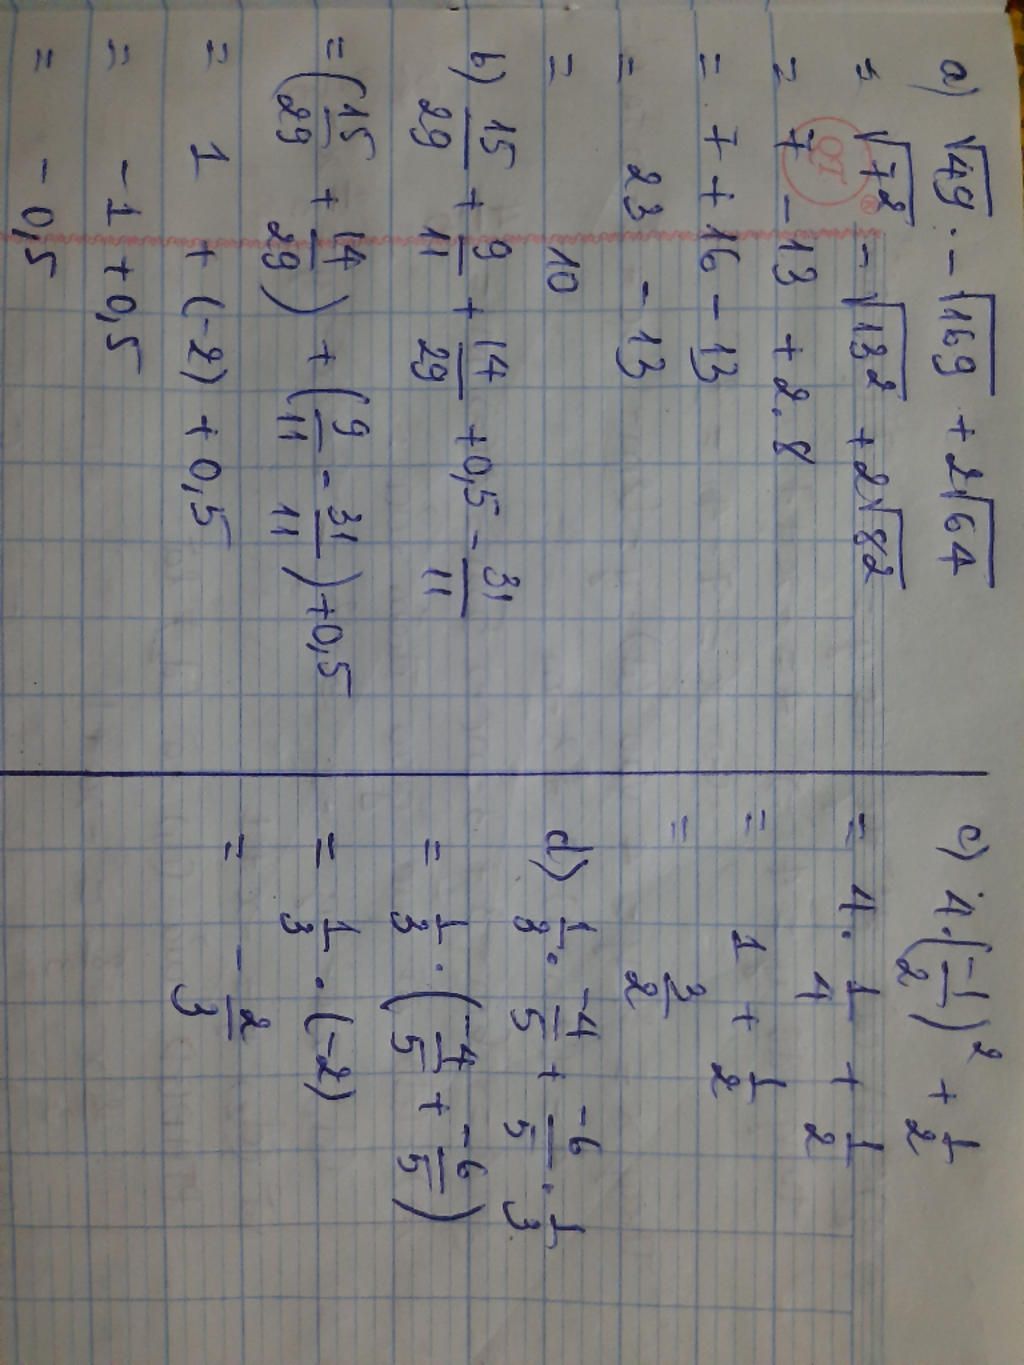 a) √49 . - √169 + 2√64
= √7² - √13² + 2√82
= 7 - 13 + 2.8
= 7 + 16 - 13
= 23 - 13
= 10
b) 15/29 + 9/11 + 14/29 + 0,5 - 31/11
= (15/29 + 14/29) + (9/11 - 31/11) + 0,5
= 1 + (-2) + 0,5
= -1 + 0,5
= - 0,5
c) 4.(-1/2)² + 1/2
= 4. 1/4 + 1/2
= 1 + 1/2
= 3/2
d) 1/3 . -4/5 + -6/5 . 1/3
= 1/3 . (-4/5 + -6/5)
= 1/3 . (-2)
= - 2/3